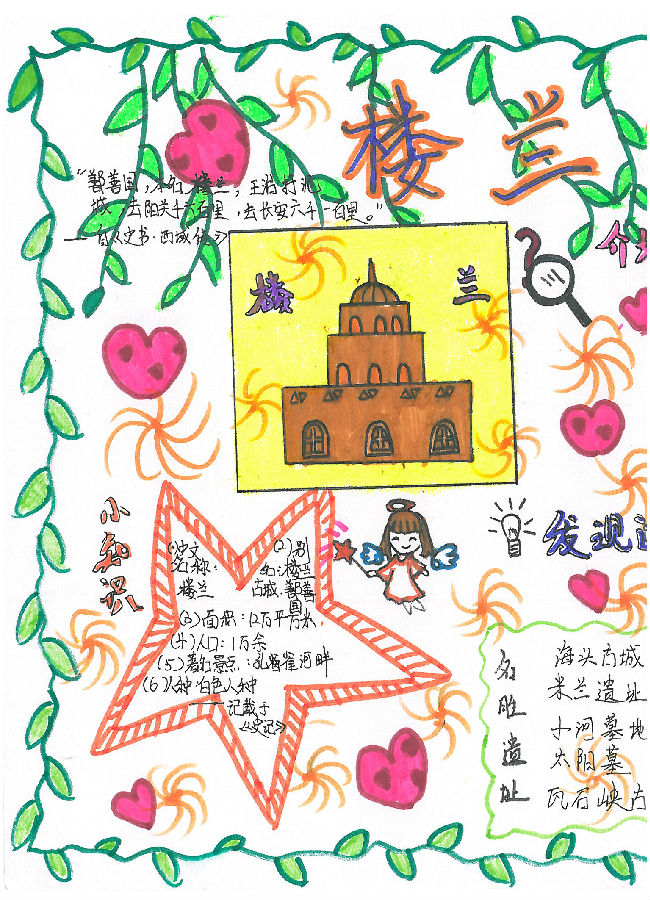 楼兰
"鄯善国，本名楼兰，王治扜泥
城，去阳关千六百里，去长安六千一百里。"
楼兰
介
小知识
(1)中文 (2)别
名称： 名:楼兰
楼兰 古城.鄯善
国
(3)面积：12万平方米.
(4)人口：1万余
(5)著名景点：孔雀河畔
(6)人种:白色人种
——记载于
《史记》
发现
名胜遗址
海头古城
米兰遗址
小河墓地
太阳墓
瓦石峡古